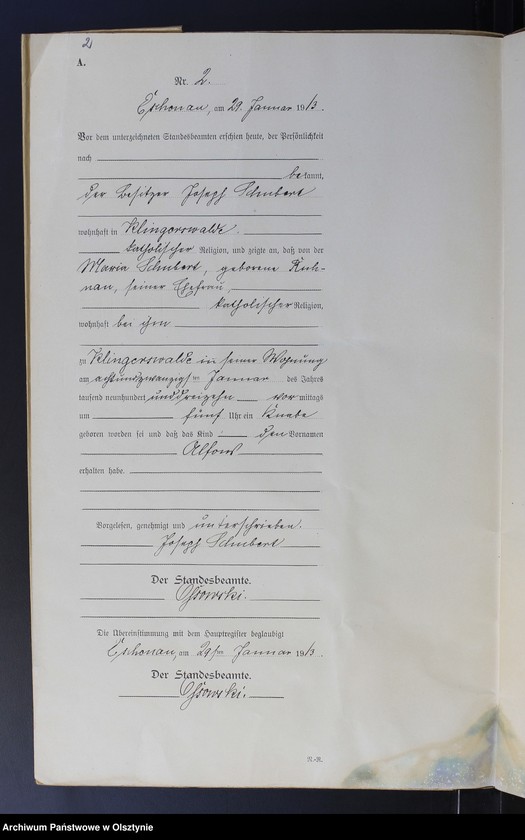 2
A.
Nr. 2.
Eschonau, am 29. Januar 1913.
Vor dem unterzeichneten Standesbeamten erschien heute, der Persönlichkeit
nach
bekannt,
der Besitzer Joseph Schubert
wohnhaft in Klingerswalde.
katholischer Religion, und zeigte an, daß von der
Maria Schubert, geborene Kuh-
nau, seiner Ehefrau,
katholischer Religion,
wohnhaft bei ihm
zu Klingerswalde in seiner Wohnung
am achtundzwanzigsten Januar des Jahres
tausend neunhundert unddreizehn vormittags
um fünf Uhr ein Knabe
geboren worden sei und daß das Kind den Vornamen
Alfons
erhalten habe.
Vorgelesen, genehmigt und unterschrieben.
Joseph Schubert
Der Standesbeamte.
Ossowski.
Die Übereinstimmung mit dem Hauptregister beglaubigt
Eschonau, am 29ten Januar 1913.
Der Standesbeamte.
Ossowski.
R.-R.
Archiwum Państwowe w Olsztynie